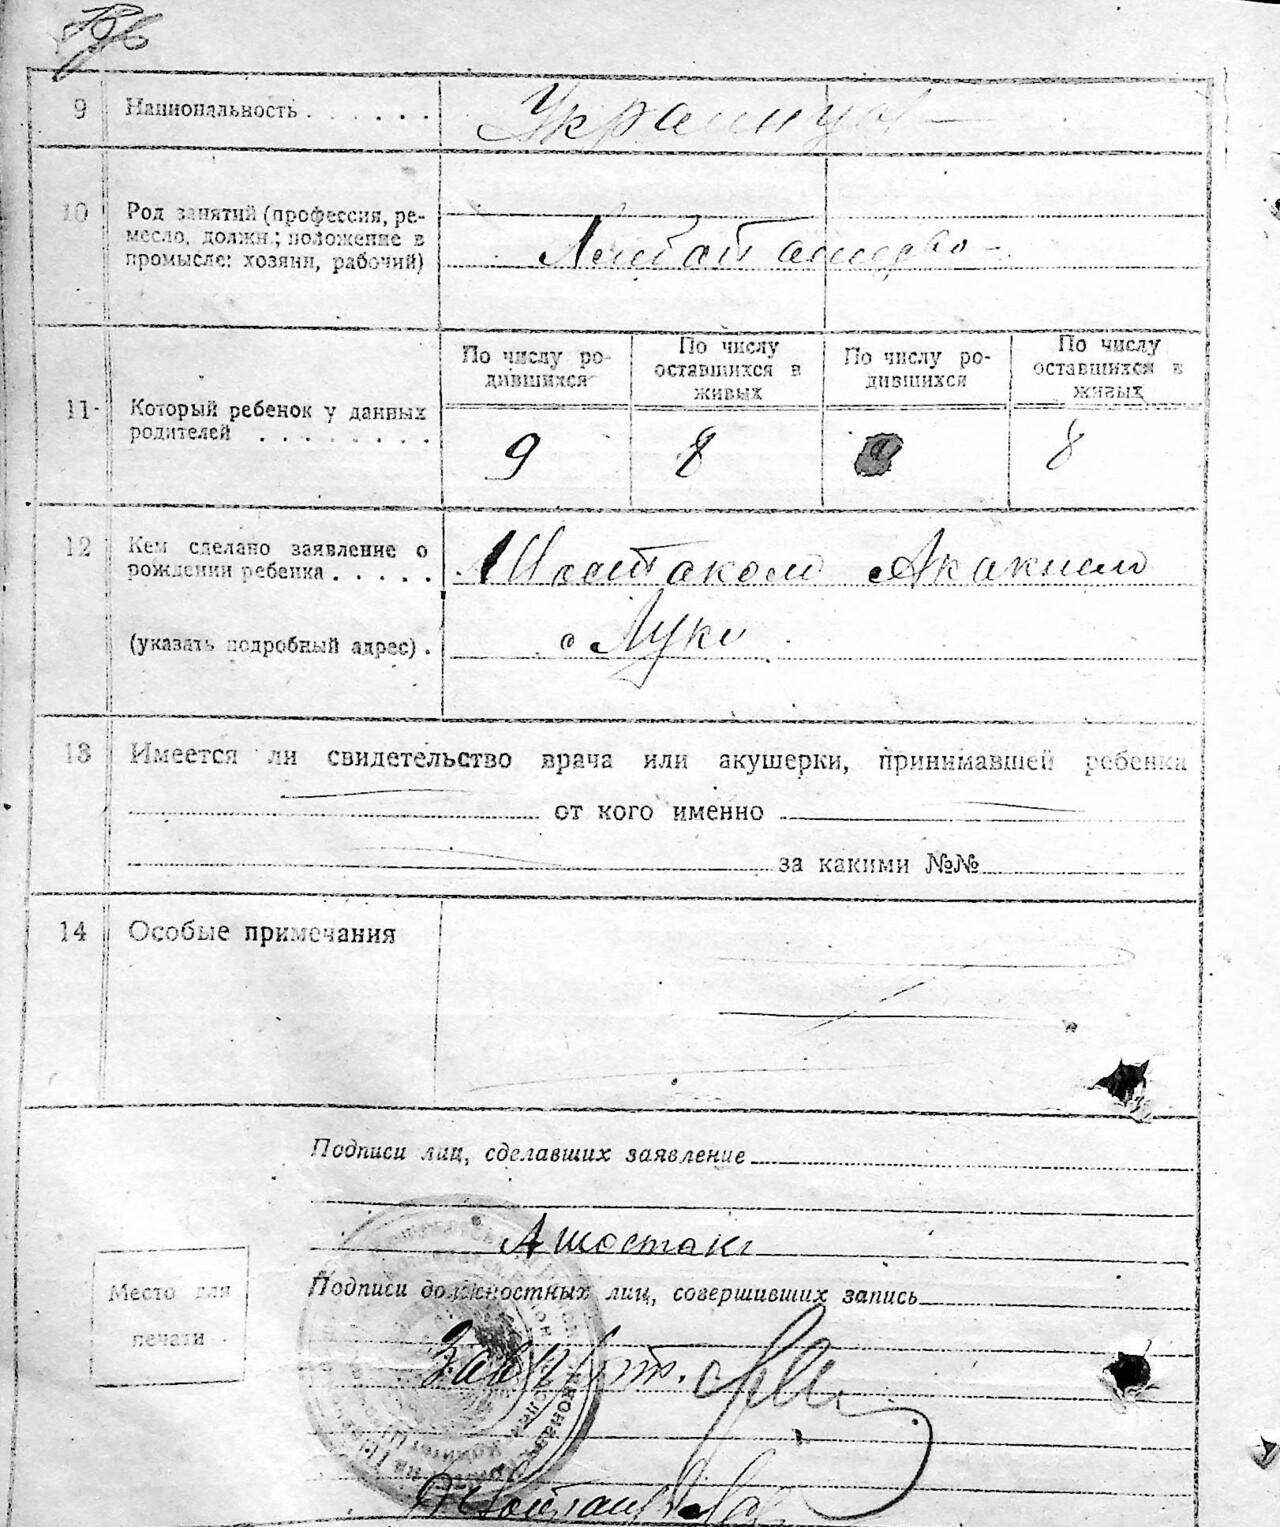 9 Национальность . . . . . . Украинцы
10 Род занятий (профессия, ре-
месло, должн.; положение в
промысле: хозяин, рабочий)
Хлебопашество
По числу ро-
дившихся
По числу
оставшихся в
живых
По числу ро-
дившихся
По числу
оставшихся в
живых
11 Который ребенок у данных
родителей . . . . . . . .
9 8 9 8
12 Кем сделано заявление о
рождении ребенка . . . . .
Шостаком Акакием
(указать подробный адрес) .
с Луки
13 Имеется ли свидетельство врача или акушерки, принимавшей ребенка
от кого именно
за какими №№
14 Особые примечания
Подписи лиц, сделавших заявление
А Шостак
Место для
печати
Подписи должностных лиц, совершивших запись